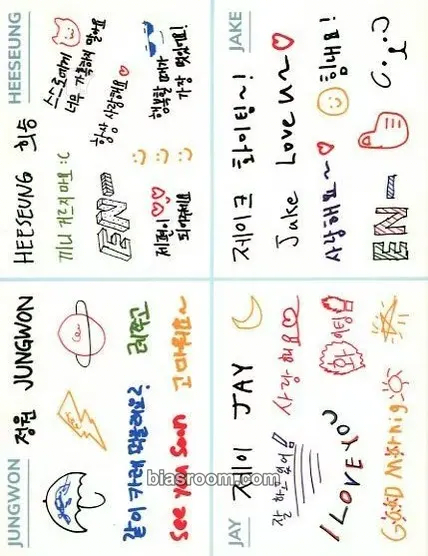 HEESEUNG
HEESEUNG 희승
끼니 거르지 마요 :(
EN-
스스로에게
너무 가혹하지 말아요
항상 사랑해요
제 편이
되어줘요
행복할 때가
가장 멋있네!
JAKE
제이크 화이팅~!
Jake Love u~
사랑해요~
힘내요!
EN-
JUNGWON
정원 JUNGWON
같이 가래 떡볼래요?
레쭈고
See you soon
고마워요~
JAY
제이 JAY
잘 하고 있어!!
사랑해요
I LOVE YOU
화이팅
GOOD MORNIG
biasroom.com